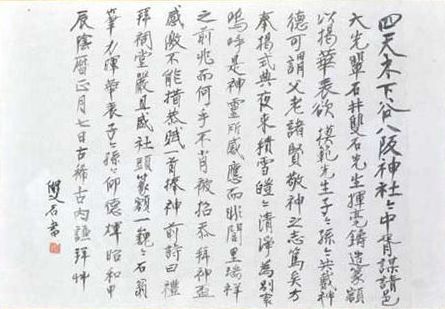 四天木下谷八阪神社々中胥謀請邑
大先輩石井雙石先生揮毫鋳造篆額
以掲華表欲模範先生子々孫々共戴神
德可謂父老諸賢敬神之志篤矣方
奉揭式典夜來積雪皚々清淨為別家
嗚呼是神霊所感應而非閭里瑞祥
之前兆而何乎不肖被招恭拜神盃
感激不能措恭賦一首捧神前詩曰禮
拜祠堂嚴且盛社頭篆額一観々石翁
華力揮華表子々孫々仰德輝昭和甲
辰陰曆正月七日古稀古内謙拜艸
雙石書